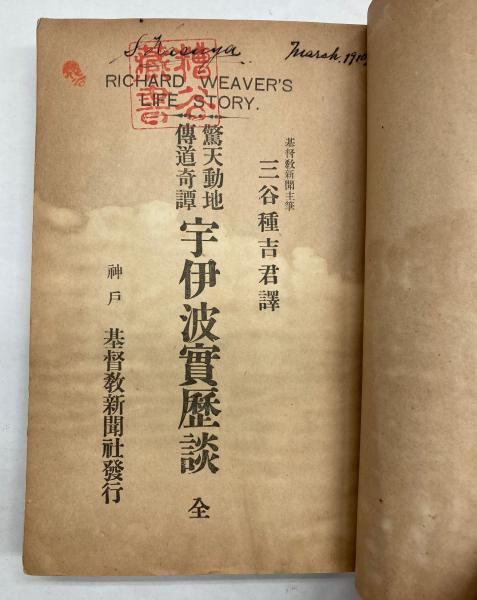 S. Kasuya March, 19
RICHARD WEAVER'S
LIFE STORY.
糟谷
藏書
基督教新聞主筆
三谷種吉君譯
驚天動地
傳道奇譚
宇伊波實歷談 全
神戶 基督教新聞社發行